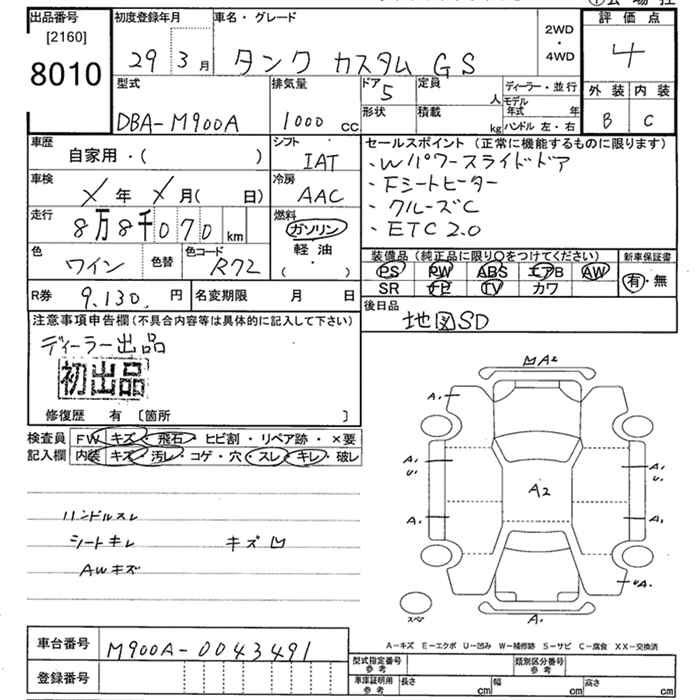 出品番号
[2160]
8010
初度登録年月
29 3月
車名・グレード
タンク カスタム GS
2WD
・
4WD
評価点
4
外装 内装
B C
型式
DBA-M900A
排気量
1000 cc
ドア
5
形状
定員
人
積載
kg
ディーラー・並行
モデル
年式 年
ハンドル 左・右
車歴
自家用・( )
シフト
IAT
車検
X年X月( 日)
冷房
AAC
走行
8万8千070km
燃料
ガソリン
軽油
( ・ )
色
ワイン
色替
色コード
R72
R券
9,130.円
名変期限 月 日
セールスポイント(正常に機能するものに限ります)
・Wパワースライドドア
・Fシートヒーター
・クルーズC
・ETC2.0
装備品(純正品に限り○をつけてください)
PS PW ABS エアB AW
SR ナビ TV カワ
新車保証書
有・無
後日品
地図SD
注意事項申告欄(不具合内容等は具体的に記入して下さい)
ディーラー出品
初出品
修復歴 有 〔箇所 〕
検査員
記入欄
FW キズ・飛石・ヒビ割・リペア跡・×要
内装 キズ・汚レ・コゲ・穴・スレ・キレ・破レ
ハンドルスレ
シートキレ キズ凹
AWキズ
凹A2
A.
A.
U.
A.
A2
A.
U.
A.
UA.
A.
スペア
A-キズ E-エクボ U-凹み W-補修跡 S-サビ C-腐食 XX-交換済
車台番号
M900A-0043491
登録番号
型式指定番号
参考
類別区分番号
参考
車庫証明用
参考
長さ cm 幅 cm 高さ cm